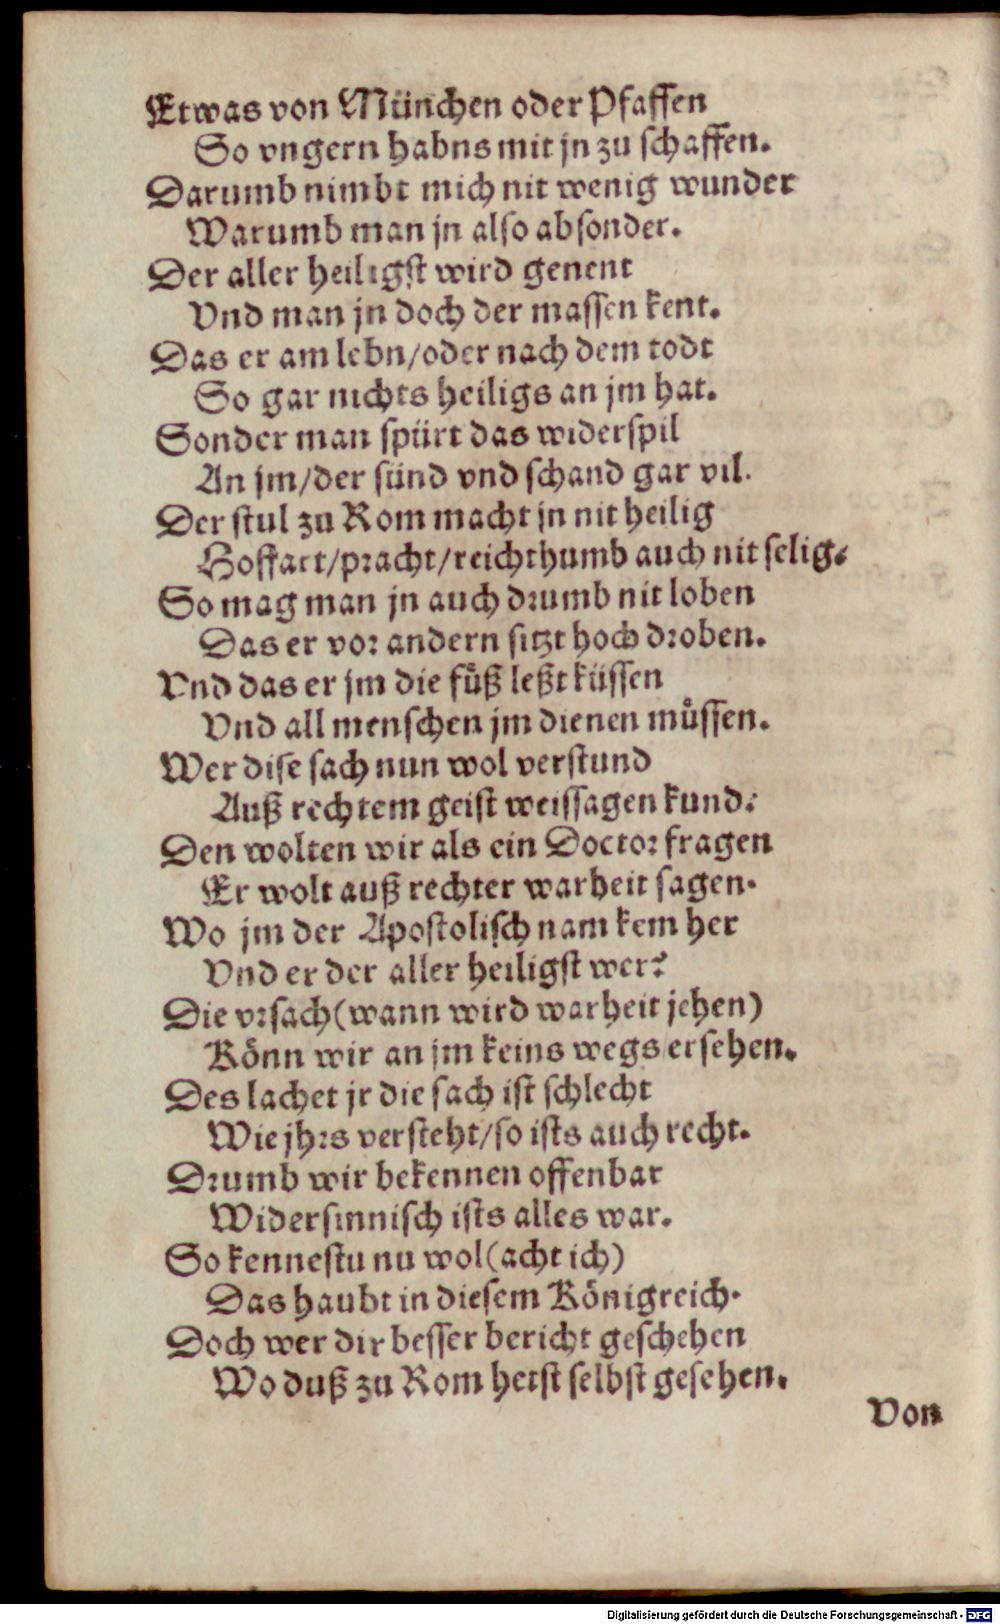 Etwas von München oder Pfaffen
So vngern habns mit jn zu schaffen.
Darumb nimbt mich nit wenig wunder
Warumb man jn also absonder.
Der aller heiligst wird genent
Vnd man jn doch der massen kent.
Das er am lebn/oder nach dem todt
So gar nichts heiligs an jm hat.
Sonder man spürt das widerspil
An jm/der sünd vnd schand gar vil.
Der stul zu Rom macht jn nit heilig
Hoffart/pracht/reichthumb auch nit selig.
So mag man jn auch drumb nit loben
Das er vor andern sitzt hoch droben.
Vnd das er jm die fůß leßt küssen
Vnd all menschen jm dienen můssen.
Wer dise sach nun wol verstund
Auß rechtem geist weissagen kund:
Den wolten wir als ein Doctor fragen
Er wolt auß rechter warheit sagen.
Wo jm der Apostolisch nam kem her
Vnd er der aller heiligst wer?
Die vrsach(wann wird warheit jehen)
Könn wir an jm keins wegs ersehen.
Des lachet jr die sach ist schlecht
Wie jhrs versteht/so ists auch recht.
Drumb wir bekennen offenbar
Widersinnisch ists alles war.
So kennestu nu wol(acht ich)
Das haubt in diesem Königreich.
Doch wer dir besser bericht geschehen
Wo duß zu Rom hetst selbst gesehen.
Von
Digitalisierung gefördert durch die Deutsche Forschungsgemeinschaft - DFG